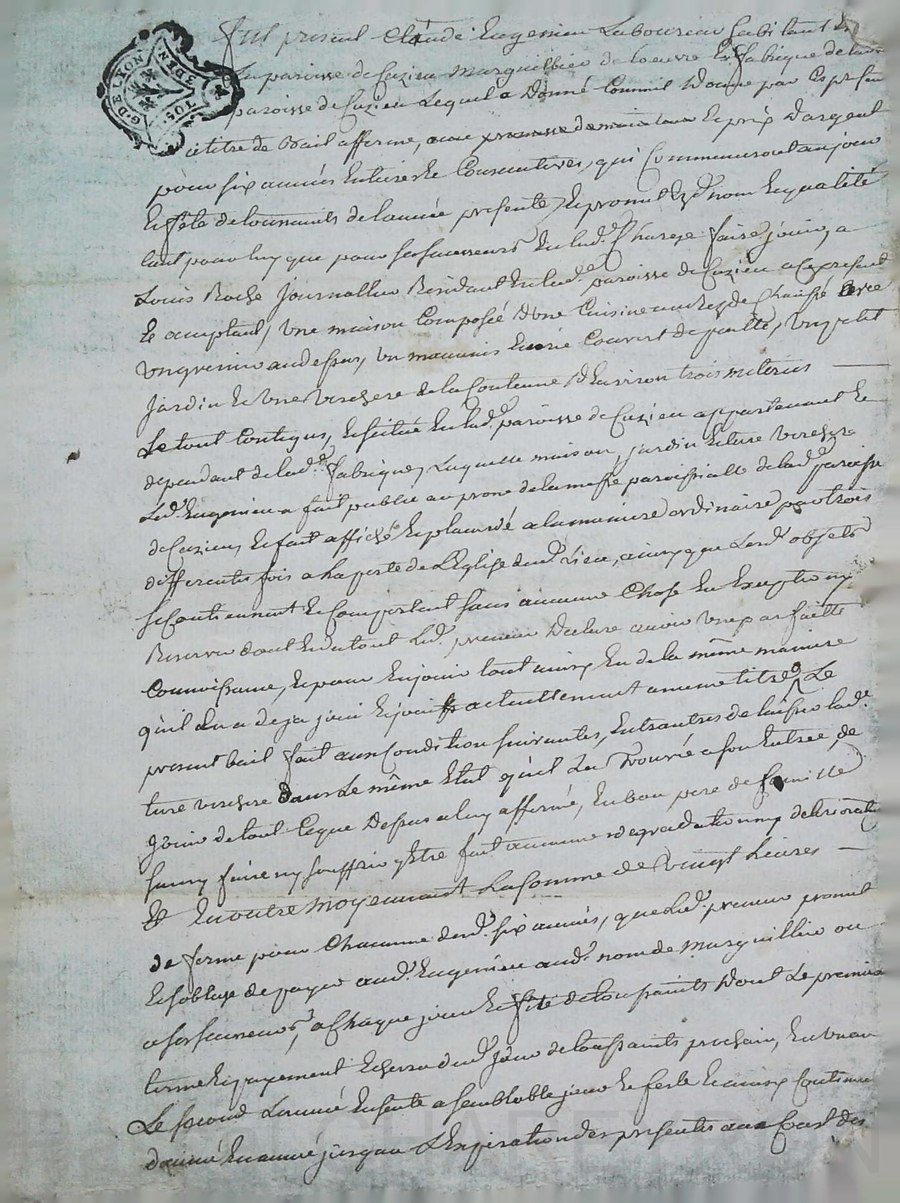 G. DE LYON
3 DEN
1 SOL
Fut present Claude Eugenieu Laboureur habitant En
La paroisse de Cuzieu Marguillier de Loeuvre Et fabrique de lad.
paroisse de Cuzieu Lequel a Donné Comme Il donne par Ces pntes
a titre de Bail afferme, avec promesse de maintenir Le prix D'argent
pour six années Entieres Et Consecutives, qui Commenceront au jour
Et fête de toussaints de lannée presente, Et promet Esd. nom Et qualité
tant pour luy que pour ses successeurs En lad. Charge faire jouir, a
Louis Roche Journallier Residant En lad. paroisse de Cuzieu a Ce present
Et acceptant, Une maison Composée D'une Cuisine au Rez de Chaussé avec
Un grenier au dessus, Un mauvais Ecurie Couvert de paille, Un petit
Jardin Et Une Verchere de la Contenue D'Environ trois meterées
Le tout Contigus, Et situé En lad. paroisse de Cuzieu appartenant Et
dependant de lad. fabrique, Laquelle maison, jardin Et ture verchere
Led. Eugenieu a fait publié au prone de la messe paroissialle de lad. paroisse
de Cuzieu, Et fait affiché Et placardé a la maniere ordinaire par trois
differentes fois a La porte de L'Eglise dud. Lieu, ainsy que Lesd. objets
se Contiennent Et Comportent sans aucune Chose En Exception ny
Reserver dont Et du tout Led. preneur Declare avoir Une parfaitte
Connoissance, Et pour En jouir tout ainsy En de la même maniere
qu'il En a deja joui Et jouit actuellement a meme titre, Le
present bail fait aux Condition suivantes, Entr'autres de laisser lad.
ture verchere dans Le même Etat qu'il La Trouvée a son Entrée, de
jouir de tout Ce que Dessus a luy affermé, En bon pere de famille
sans y faire ny souffrir y Etre fait aucunne degradation ny deterioration
Et En outre moyennant La somme de Vingt Livres
de ferme pour Chacunne desd. six années, que led. preneur promet
Et s'oblige de payer aud. Eugenieu aud. nom de Marguillier ou
a ses successeurs, a Chaque jour Et fête de toussaints Dont Le premier
terme Et payement Echerra dud. jour de toussaints prochain, En Un an
Le second L'année Ensuite a semblable jour Et feste Et ainsy Continué
d'année En année jusqu'a L'Expiration des presentes aux Cost des